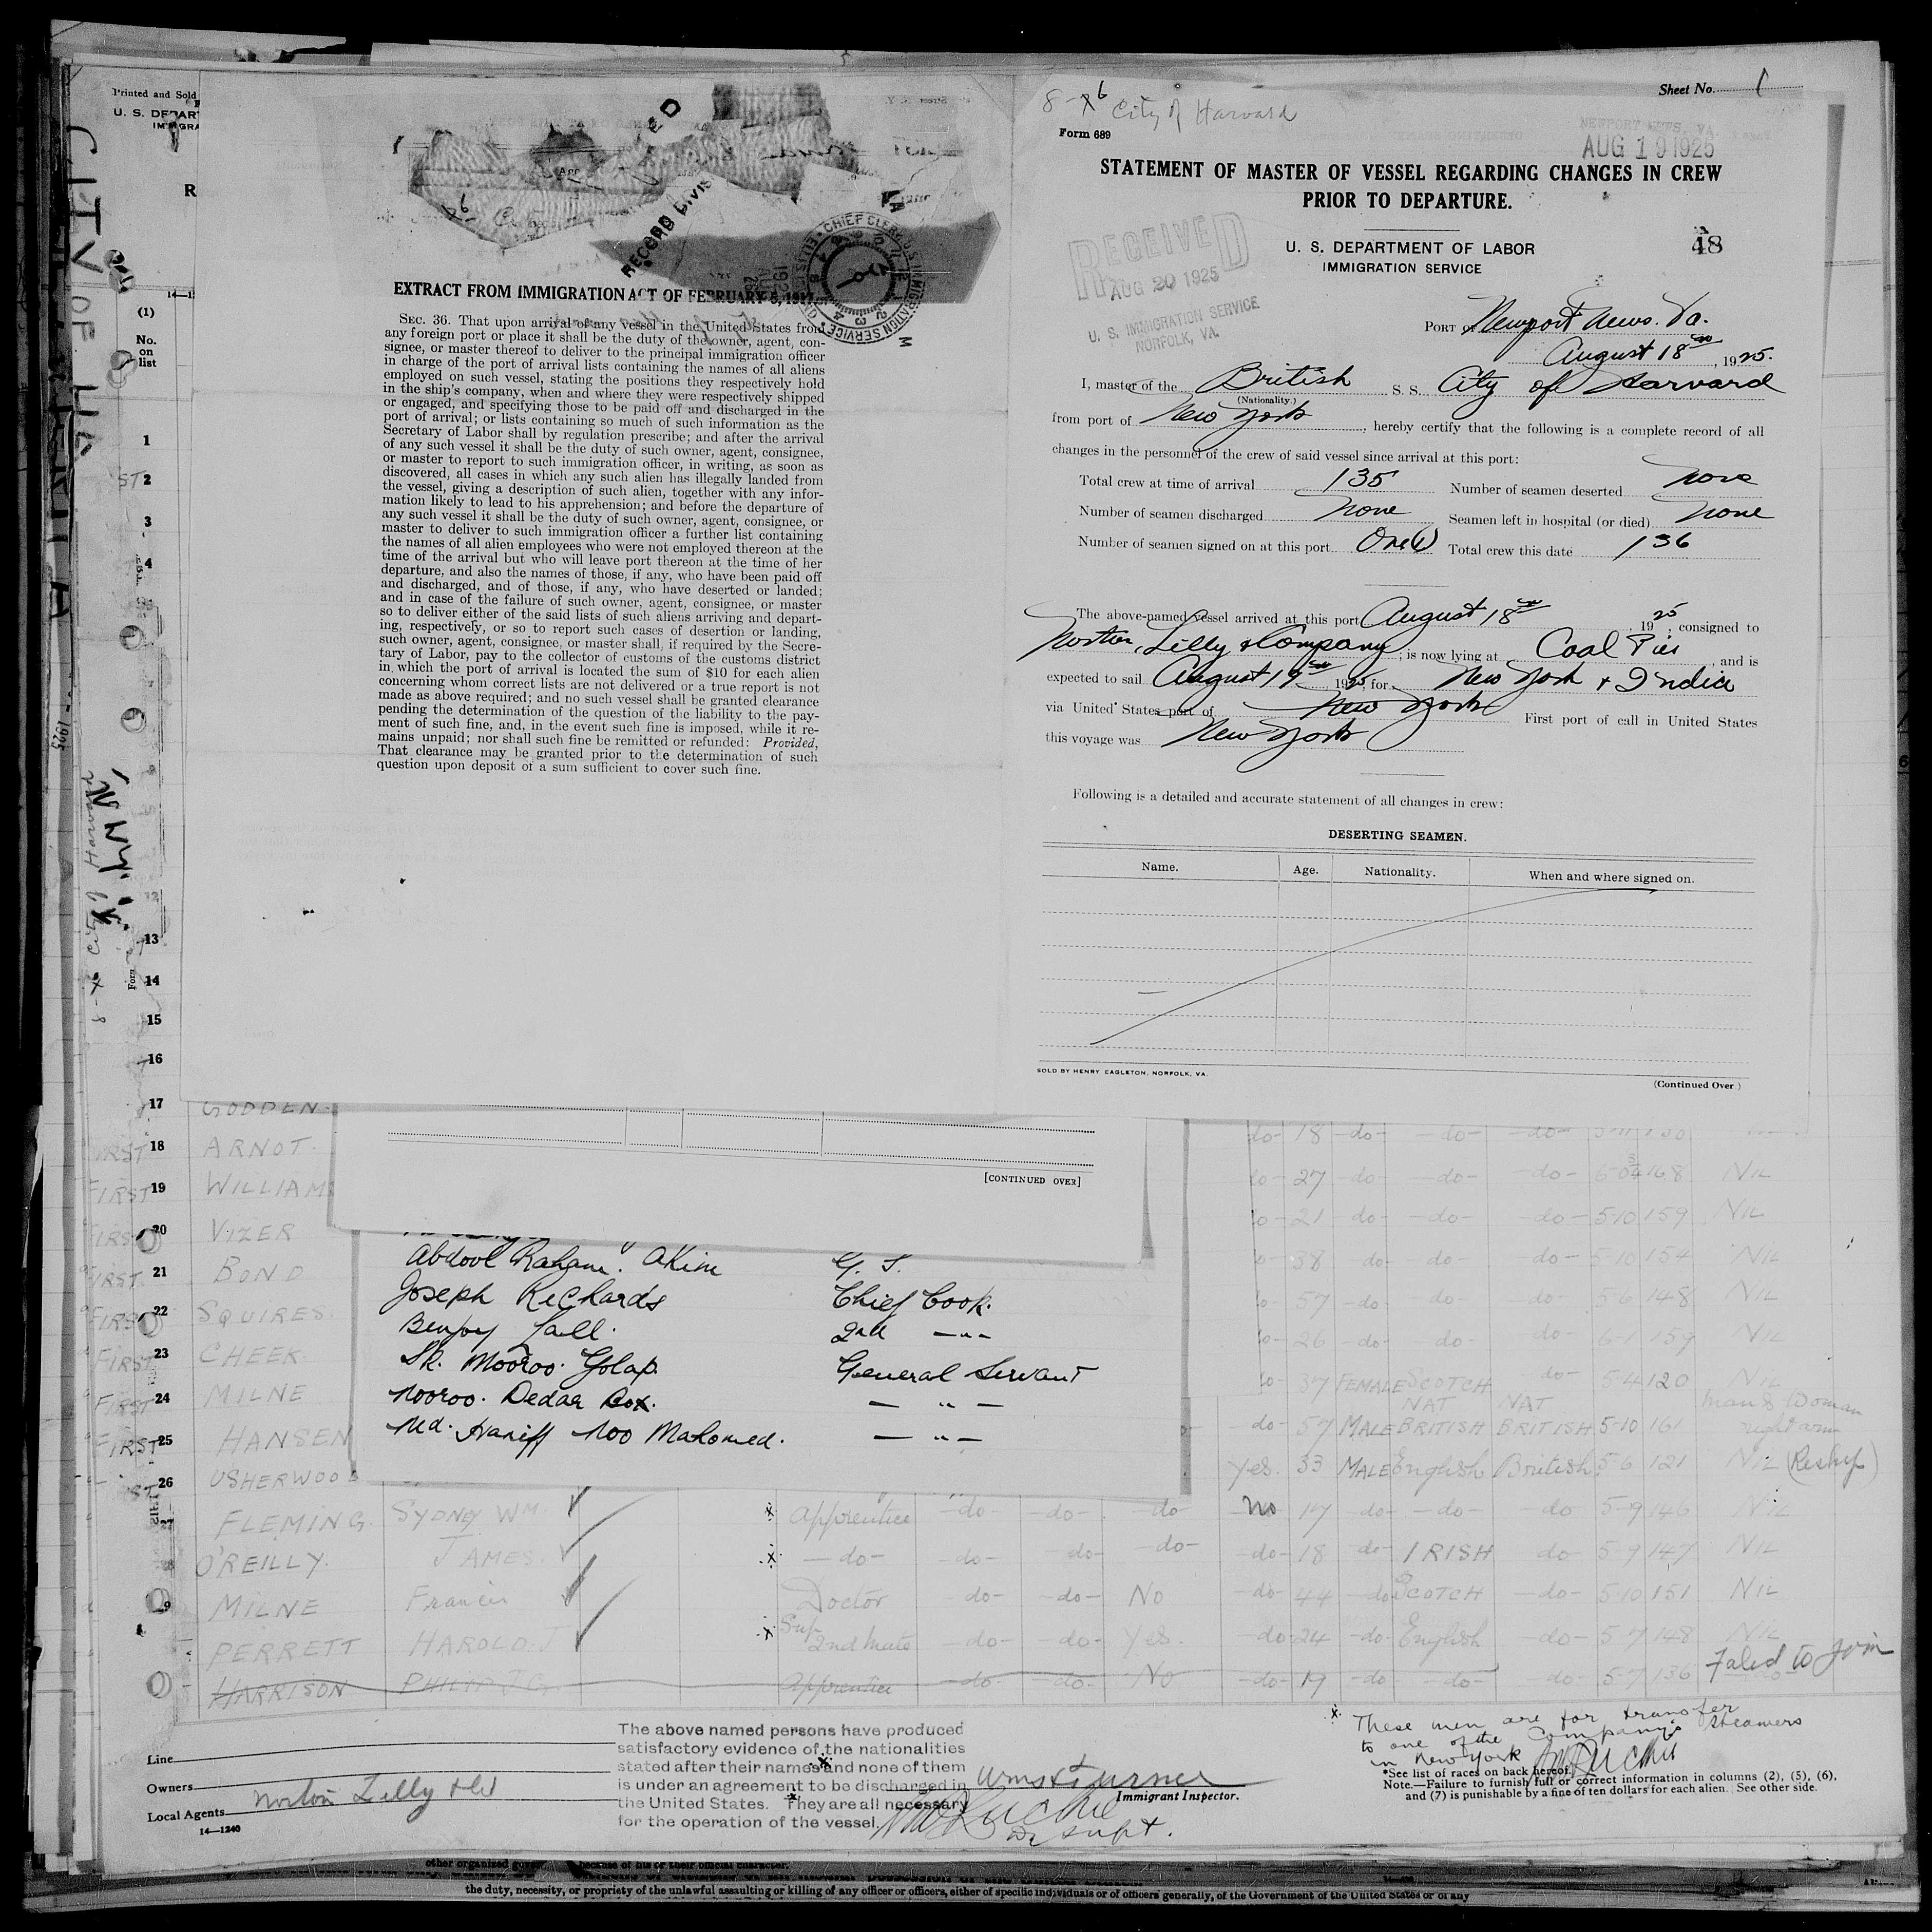 Printed and Sold
U. S. DEPAR
IMMIGRA
R
(1)
No.
on
list
CITY OF HARVARD
RECORD DIVIS
EXTRACT FROM IMMIGRATION ACT OF FEBRUARY 5, 1917.
SEC. 36. That upon arrival of any vessel in the United States from
any foreign port or place it shall be the duty of the owner, agent, con-
signee, or master thereof to deliver to the principal immigration officer
in charge of the port of arrival lists containing the names of all aliens
employed on such vessel, stating the positions they respectively hold
in the ship's company, when and where they were respectively shipped
or engaged, and specifying those to be paid off and discharged in the
port of arrival; or lists containing so much of such information as the
Secretary of Labor shall by regulation prescribe; and after the arrival
of any such vessel it shall be the duty of such owner, agent, consignee,
or master to report to such immigration officer, in writing, as soon as
discovered, all cases in which any such alien has illegally landed from
the vessel, giving a description of such alien, together with any infor-
mation likely to lead to his apprehension; and before the departure of
any such vessel it shall be the duty of such owner, agent, consignee, or
master to deliver to such immigration officer a further list containing
the names of all alien employees who were not employed thereon at the
time of the arrival but who will leave port thereon at the time of her
departure, and also the names of those, if any, who have been paid off
and discharged, and of those, if any, who have deserted or landed;
and in case of the failure of such owner, agent, consignee, or master
so to deliver either of the said lists of such aliens arriving and depart-
ing, respectively, or so to report such cases of desertion or landing,
such owner, agent, consignee, or master shall, if required by the Secre-
tary of Labor, pay to the collector of customs of the customs district
in which the port of arrival is located the sum of $10 for each alien
concerning whom correct lists are not delivered or a true report is not
made as above required; and no such vessel shall be granted clearance
pending the determination of the question of the liability to the pay-
ment of such fine, and, in the event such fine is imposed, while it re-
mains unpaid; nor shall such fine be remitted or refunded: Provided,
That clearance may be granted prior to the determination of such
question upon deposit of a sum sufficient to cover such fine.
Sheet No. 1
8-x6 City of Harvard
Form 689
NEWPORT NEWS, VA.
AUG 19 1925
STATEMENT OF MASTER OF VESSEL REGARDING CHANGES IN CREW
PRIOR TO DEPARTURE.
RECEIVED
AUG 20 1925
U. S. IMMIGRATION SERVICE
NORFOLK, VA.
U. S. DEPARTMENT OF LABOR
IMMIGRATION SERVICE
48
PORT OF Newport News. Va.
August 18th, 1925.
I, master of the British S. S. City of Harvard
(Nationality.)
from port of New York, hereby certify that the following is a complete record of all
changes in the personnel of the crew of said vessel since arrival at this port:
Total crew at time of arrival 135 Number of seamen deserted none
Number of seamen discharged none Seamen left in hospital (or died) none
Number of seamen signed on at this port One(1) Total crew this date 136
The above-named vessel arrived at this port August 18th, 1925, consigned to
Norton, Lilly & Company; is now lying at Coal Pier, and is
expected to sail August 19th 1925, for New York & India
via United States port of New York First port of call in United States
this voyage was New York
Following is a detailed and accurate statement of all changes in crew:
DESERTING SEAMEN.
Name. Age. Nationality. When and where signed on.
SOLD BY HENRY EAGLETON, NORFOLK, VA.
(Continued Over)
[CONTINUED OVER]
Abdool Raham. Akim G. S.
Joseph Richards Chief Cook.
Benjoy Lall. 2nd -"-
Sk. Mooroo. Golap. General Servant
Nooroo. Dedar Box. - " -
Md. Haniff Noo Mahomed. - " -
17 GODDEN
FIRST 18 ARNOT. do- 18 -do- -do- -do-
FIRST 19 WILLIAMS 27 -do- -do- -do- 168 NIL
FIRST 20 VIZER 21 -do- -do- -do- 5-10 159 NIL
FIRST 21 BOND 38 do- do- -do- 5-10 154 NIL
FIRST 22 SQUIRES. 57 -do- do- -do- 5-6 148 NIL
FIRST 23 CHEEK 26 -do- do- do- 6-1 159 NIL
FIRST 24 MILNE 37 FEMALE SCOTCH -do- 5-4 120 NIL
FIRST 25 HANSEN do- 57 MALE NAT BRITISH NAT BRITISH 5-10 161 man & Woman right arm
26 USHERWOOD Yes. 33 MALE English British 5-6 121 NIL (Reship)
27 FLEMING. SYDNEY WM. x Apprentice -do- -do- -do No 17 -do- -do- -do 5-9 146 NIL
28 O'REILLY. JAMES. x -do- -do- -do- -do- -do- 18 -do- IRISH do- 5-9 147 NIL
MILNE Francis Doctor -do- -do- No -do- 44 -do- SCOTCH -do- 5-10 151 NIL
PERRETT HAROLD. J x Sup 2nd Mate -do- -do- Yes. -do- 24 -do- English -do- 5-7 148 NIL
HARRISON PHILIP J G. Apprentice -do- -do- No -do- 17 -do -do- do- 5-7 136 Failed to join
Line
Owners
Local Agents Norton Lilly & Co
14—1240
The above named persons have produced
satisfactory evidence of the nationalities
stated after their names and none of them
is under an agreement to be discharged in
the United States. They are all necessary
for the operation of the vessel.
Immigrant Inspector.
x These men are for transfer
to one of the Company's steamers
in New York
*See list of races on back hereof.
Note.—Failure to furnish full or correct information in columns (2), (5), (6),
and (7) is punishable by a fine of ten dollars for each alien. See other side.
because of his or their official character.
the duty, necessity, or propriety of the unlawful assaulting or killing of any officer or officers, either of specific individuals or of officers generally, of the Government of the United States or of any